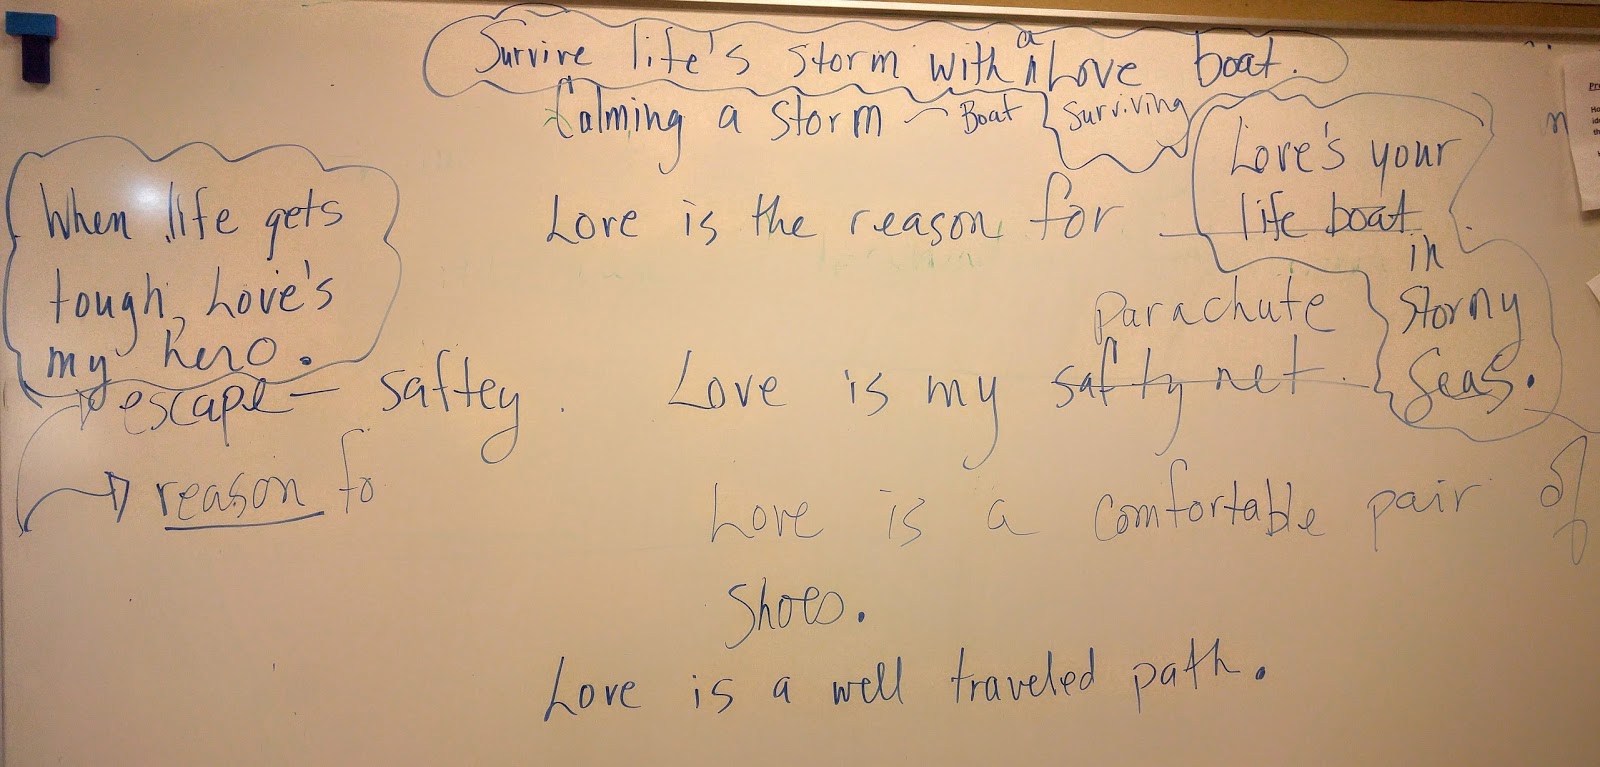 Survive life's storm with a Love boat.
Calming a storm — Boat Surviving
When life gets
tough, Love's
my hero.
escape — saftey.
reason fo
Love is the reason for
Love's your
life boat
in
stormy
seas.
parachute
Love is my safty net.
Love is a comfortable pair of
shoes.
Love is a well traveled path.